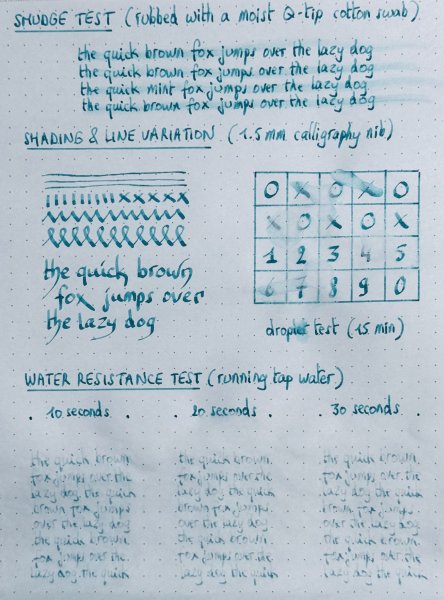 SMUDGE TEST (rubbed with a moist Q-tip cotton swab)
the quick brown fox jumps over the lazy dog
the quick brown fox jumps over the lazy dog
the quick mint fox jumps over the lazy dog
the quick brown fox jumps over the lazy dog
SHADING & LINE VARIATION (1.5mm calligraphy nib)
the quick brown
fox jumps over
the lazy dog
O X O X O
X O X O X
1 2 3 4 5
6 7 8 9 0
droplet test (15 min)
WATER RESISTANCE TEST (running tap water)
. 10 seconds . . 20 seconds . . 30 seconds .
the quick brown the quick brown the quick brown
fox jumps over the fox jumps over the fox jumps over the
lazy dog the quick lazy dog the quick lazy dog the quick
brown fox jumps brown fox jumps brown fox jumps
over the lazy dog over the lazy dog over the lazy dog
the quick brown the quick brown the quick brown
fox jumps over the fox jumps over the fox jumps over the
lazy dog the quick lazy dog the quick lazy dog the quick